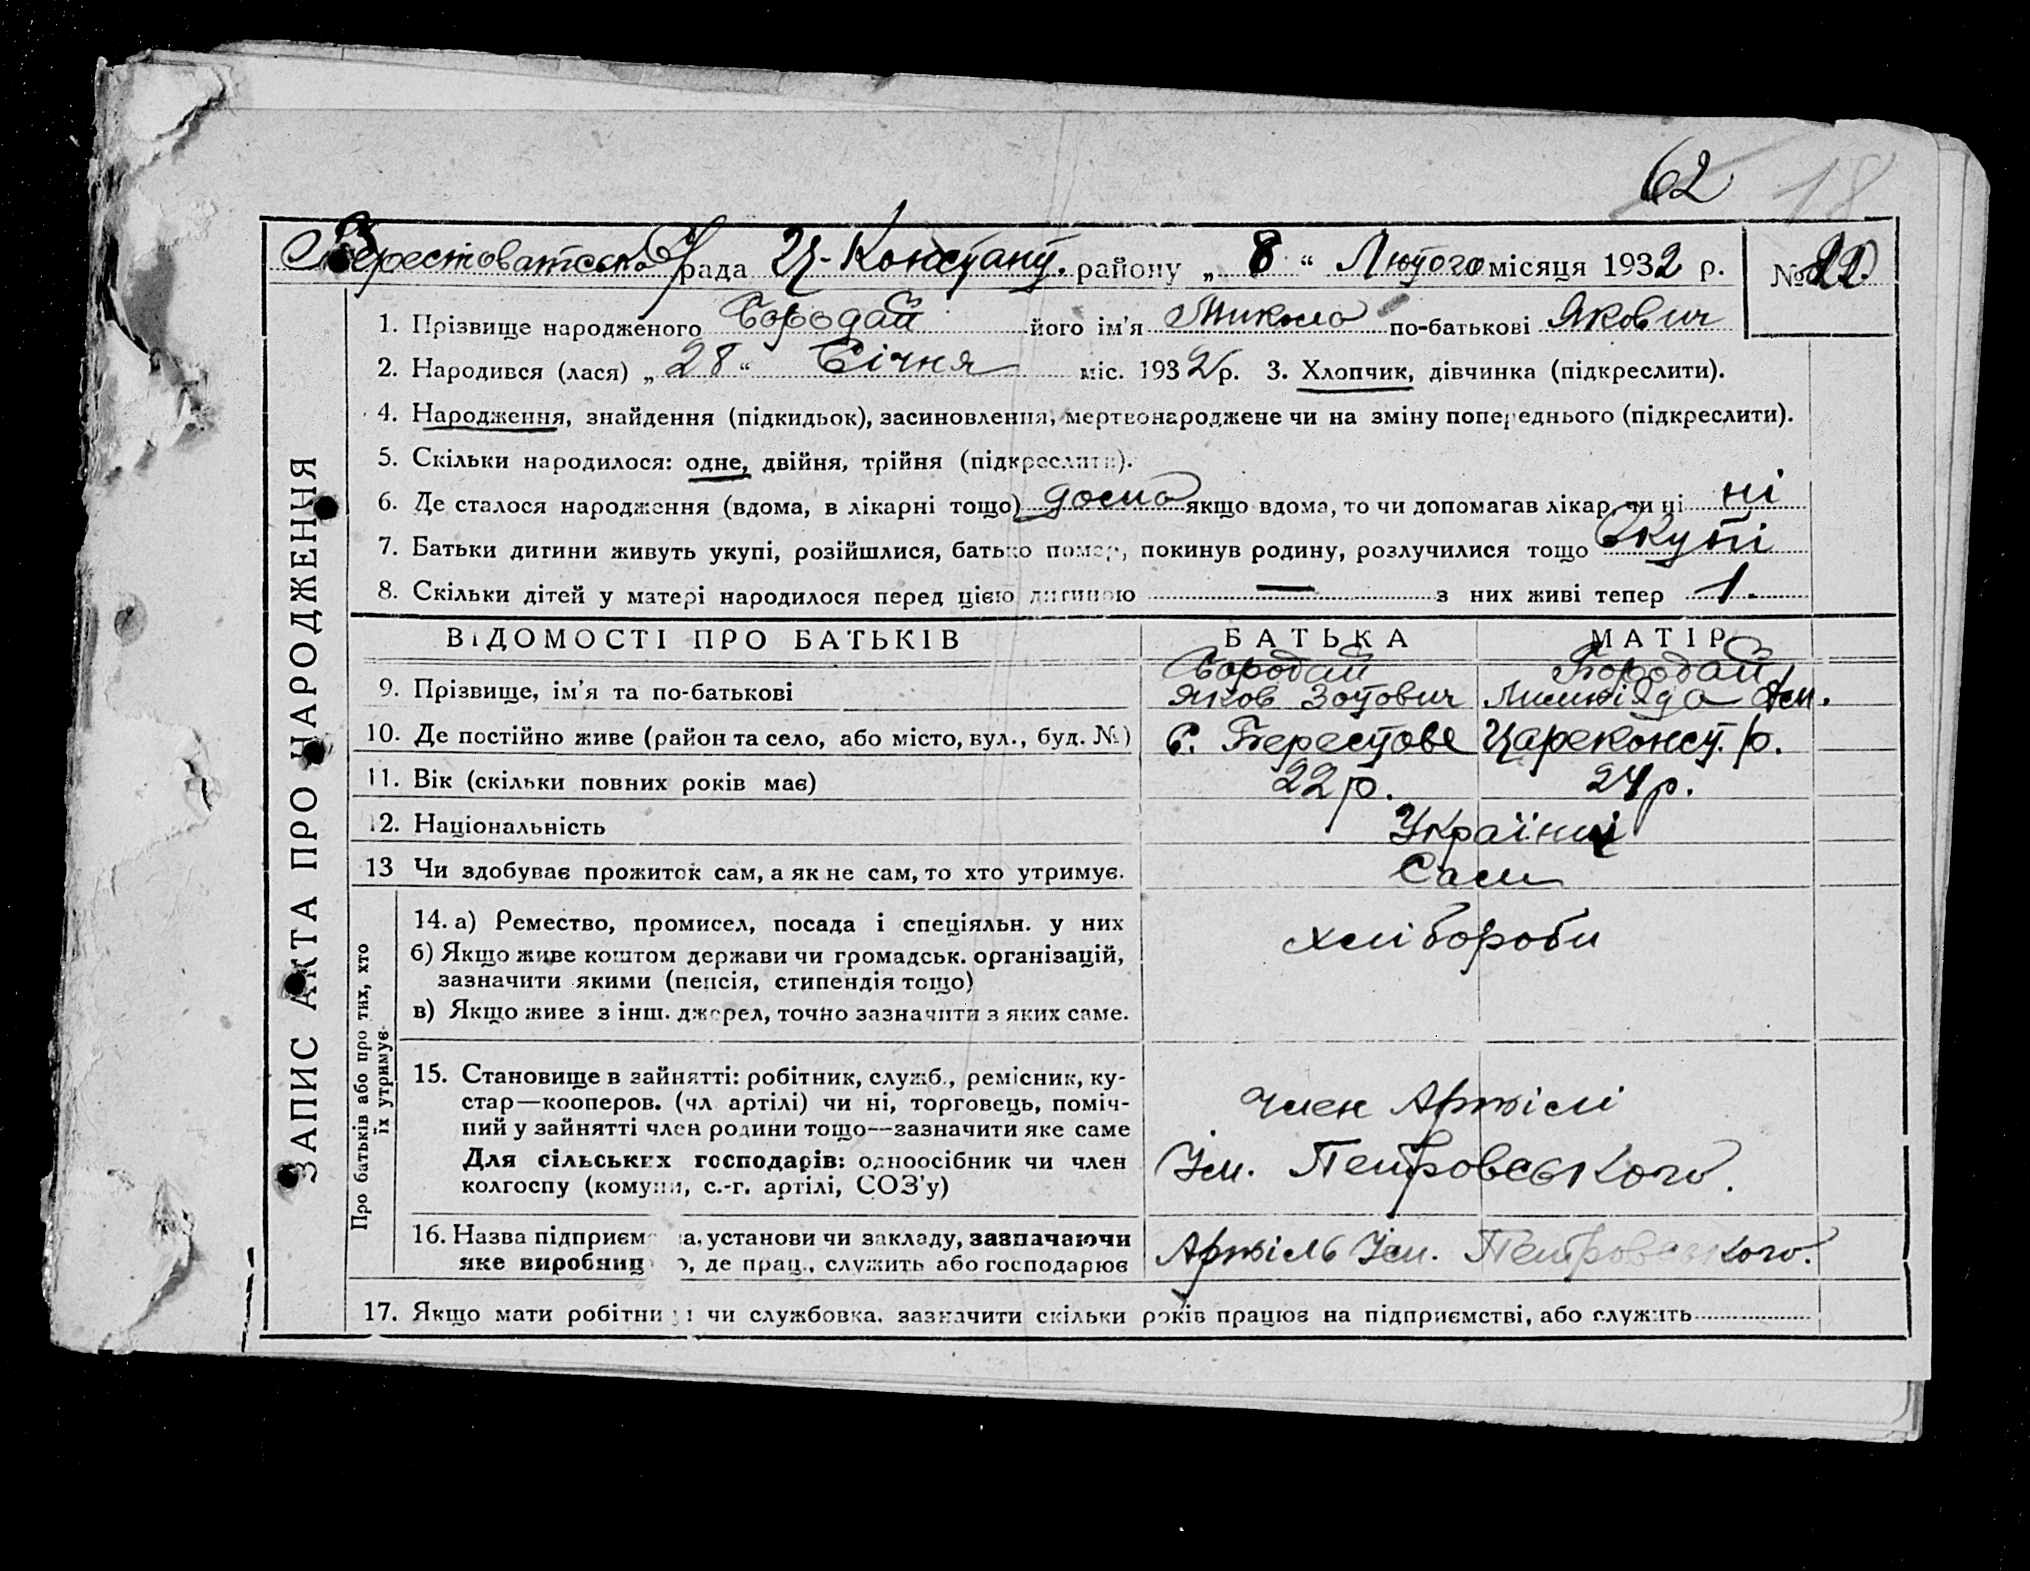 62 18
Берестоватська рада Ц-Констант. району „ 8 “ Лютого місяця 1932 р. № 22.
ЗАПИС АКТА ПРО НАРОДЖЕННЯ
1. Прізвище народженого Бородай його ім'я Микола по-батькові Якович
2. Народився (лася) „ 28 “ Січня міс. 1932 р. 3. Хлопчик, дівчинка (підкреслити).
4. Народження, знайдення (підкидьок), засиновлення, мертвонароджене чи на зміну попереднього (підкреслити).
5. Скільки народилося: одне, двійня, трійня (підкреслити).
6. Де сталося народження (вдома, в лікарні тощо) дома якщо вдома, то чи допомагав лікар, чи ні ні
7. Батьки дитини живуть укупі, розійшлися, батько помер, покинув родину, розлучилися тощо Вкупі
8. Скільки дітей у матері народилося перед цією дитиною — з них живі тепер 1.
ВІДОМОСТІ ПРО БАТЬКІВ БАТЬКА МАТІР
9. Прізвище, ім'я та по-батькові Бородай Яков Зотович Бородай
10. Де постійно живе (район та село, або місто, вул., буд. №) С. Берестове Цареконст. р.
11. Вік (скільки повних років має) 22 р. 24 р.
12. Національність Українці
13 Чи здобуває прожиток сам, а як не сам, то хто утримує. Сами
Про батьків або про тих, хто їх утримує
14. а) Ремество, промисел, посада і спеціяльн. у них хлібороби
б) Якщо живе коштом держави чи громадськ. організацій,
зазначити якими (пенсія, стипендія тощо)
в) Якщо живе з інш. джерел, точно зазначити з яких саме.
15. Становище в зайнятті: робітник, служб., ремісник, ку-
стар—кооперов. (чл. артілі) чи ні, торговець, поміч- член Артілі
ний у зайнятті член родини тощо—зазначити яке саме
Для сільських господарів: одноосібник чи член Ім. Петровського.
колгоспу (комуни, с.-г. артілі, СОЗ'у)
16. Назва підприєм а, установи чи закладу, зазначаючи Артіль Ім. Петровського.
яке виробниц о, де прац., служить або господарює
17. Якщо мати робітниця чи службовка, зазначити скільки років працює на підприємстві, або служить